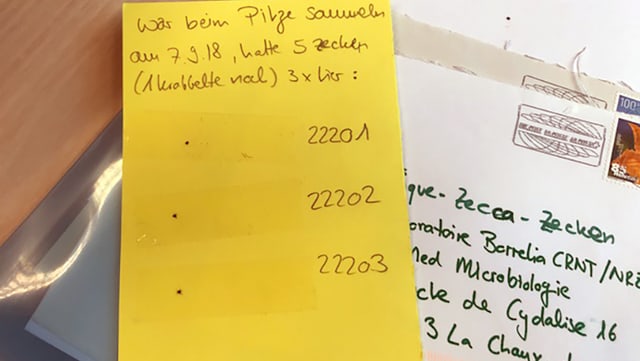 War beim Pilze sammeln
am 7.9.18, hatte 5 Zecken
(1 krabbelte noch) 3 x hier:
22201
22202
22203
100
85
que-Zecca-Zecken
oratoire Borrelia CRNT/NRZ
Med Microbiologie
cle de Cydalise 16
3 La Chaux